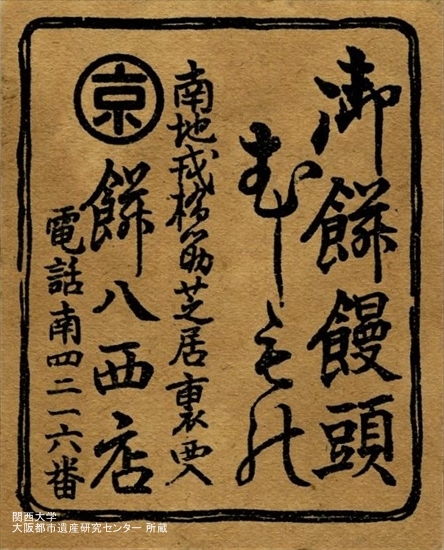 御餅饅頭
むしもの
南地戎橋筋芝居裏西入
京
餅八西店
電話南四二一六番
関西大学
大阪都市遺産研究センター 所蔵